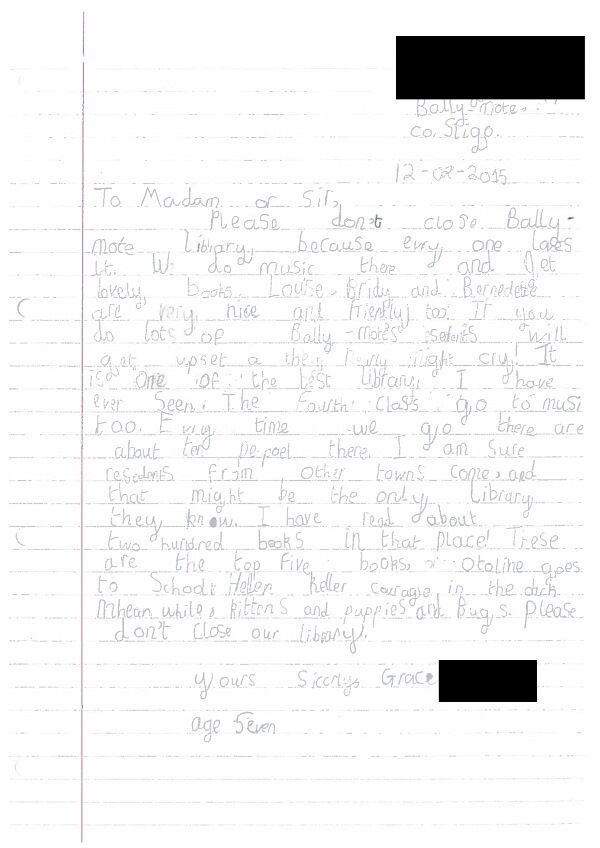 Bally-mote.
co. Sligo.
12-02-2015
To Madam or Sir,
Please don't close Bally-
mote library, because evry one loves
it. We do music there and get
lovely books. Louise, Bridy and Bernedette
are very nice and friendly too. If you
do lots of Bally-mote's will
get upset a they night cry! It
is One of the best library, I have
ever seen. The Fourth class go to musi
too. Evry time we go there are
about ten pepoel there. I am sure
resedents from other towns come, and
that might be the only library
they know. I have read about
two hundred books in that place! These
are the top five books, Otoline goes
to School: Helen keller courage in the dark
Mhean while, kittens and puppies and Bugs. Please
don't close our library.
yours Siccrlys Grace
age Seven